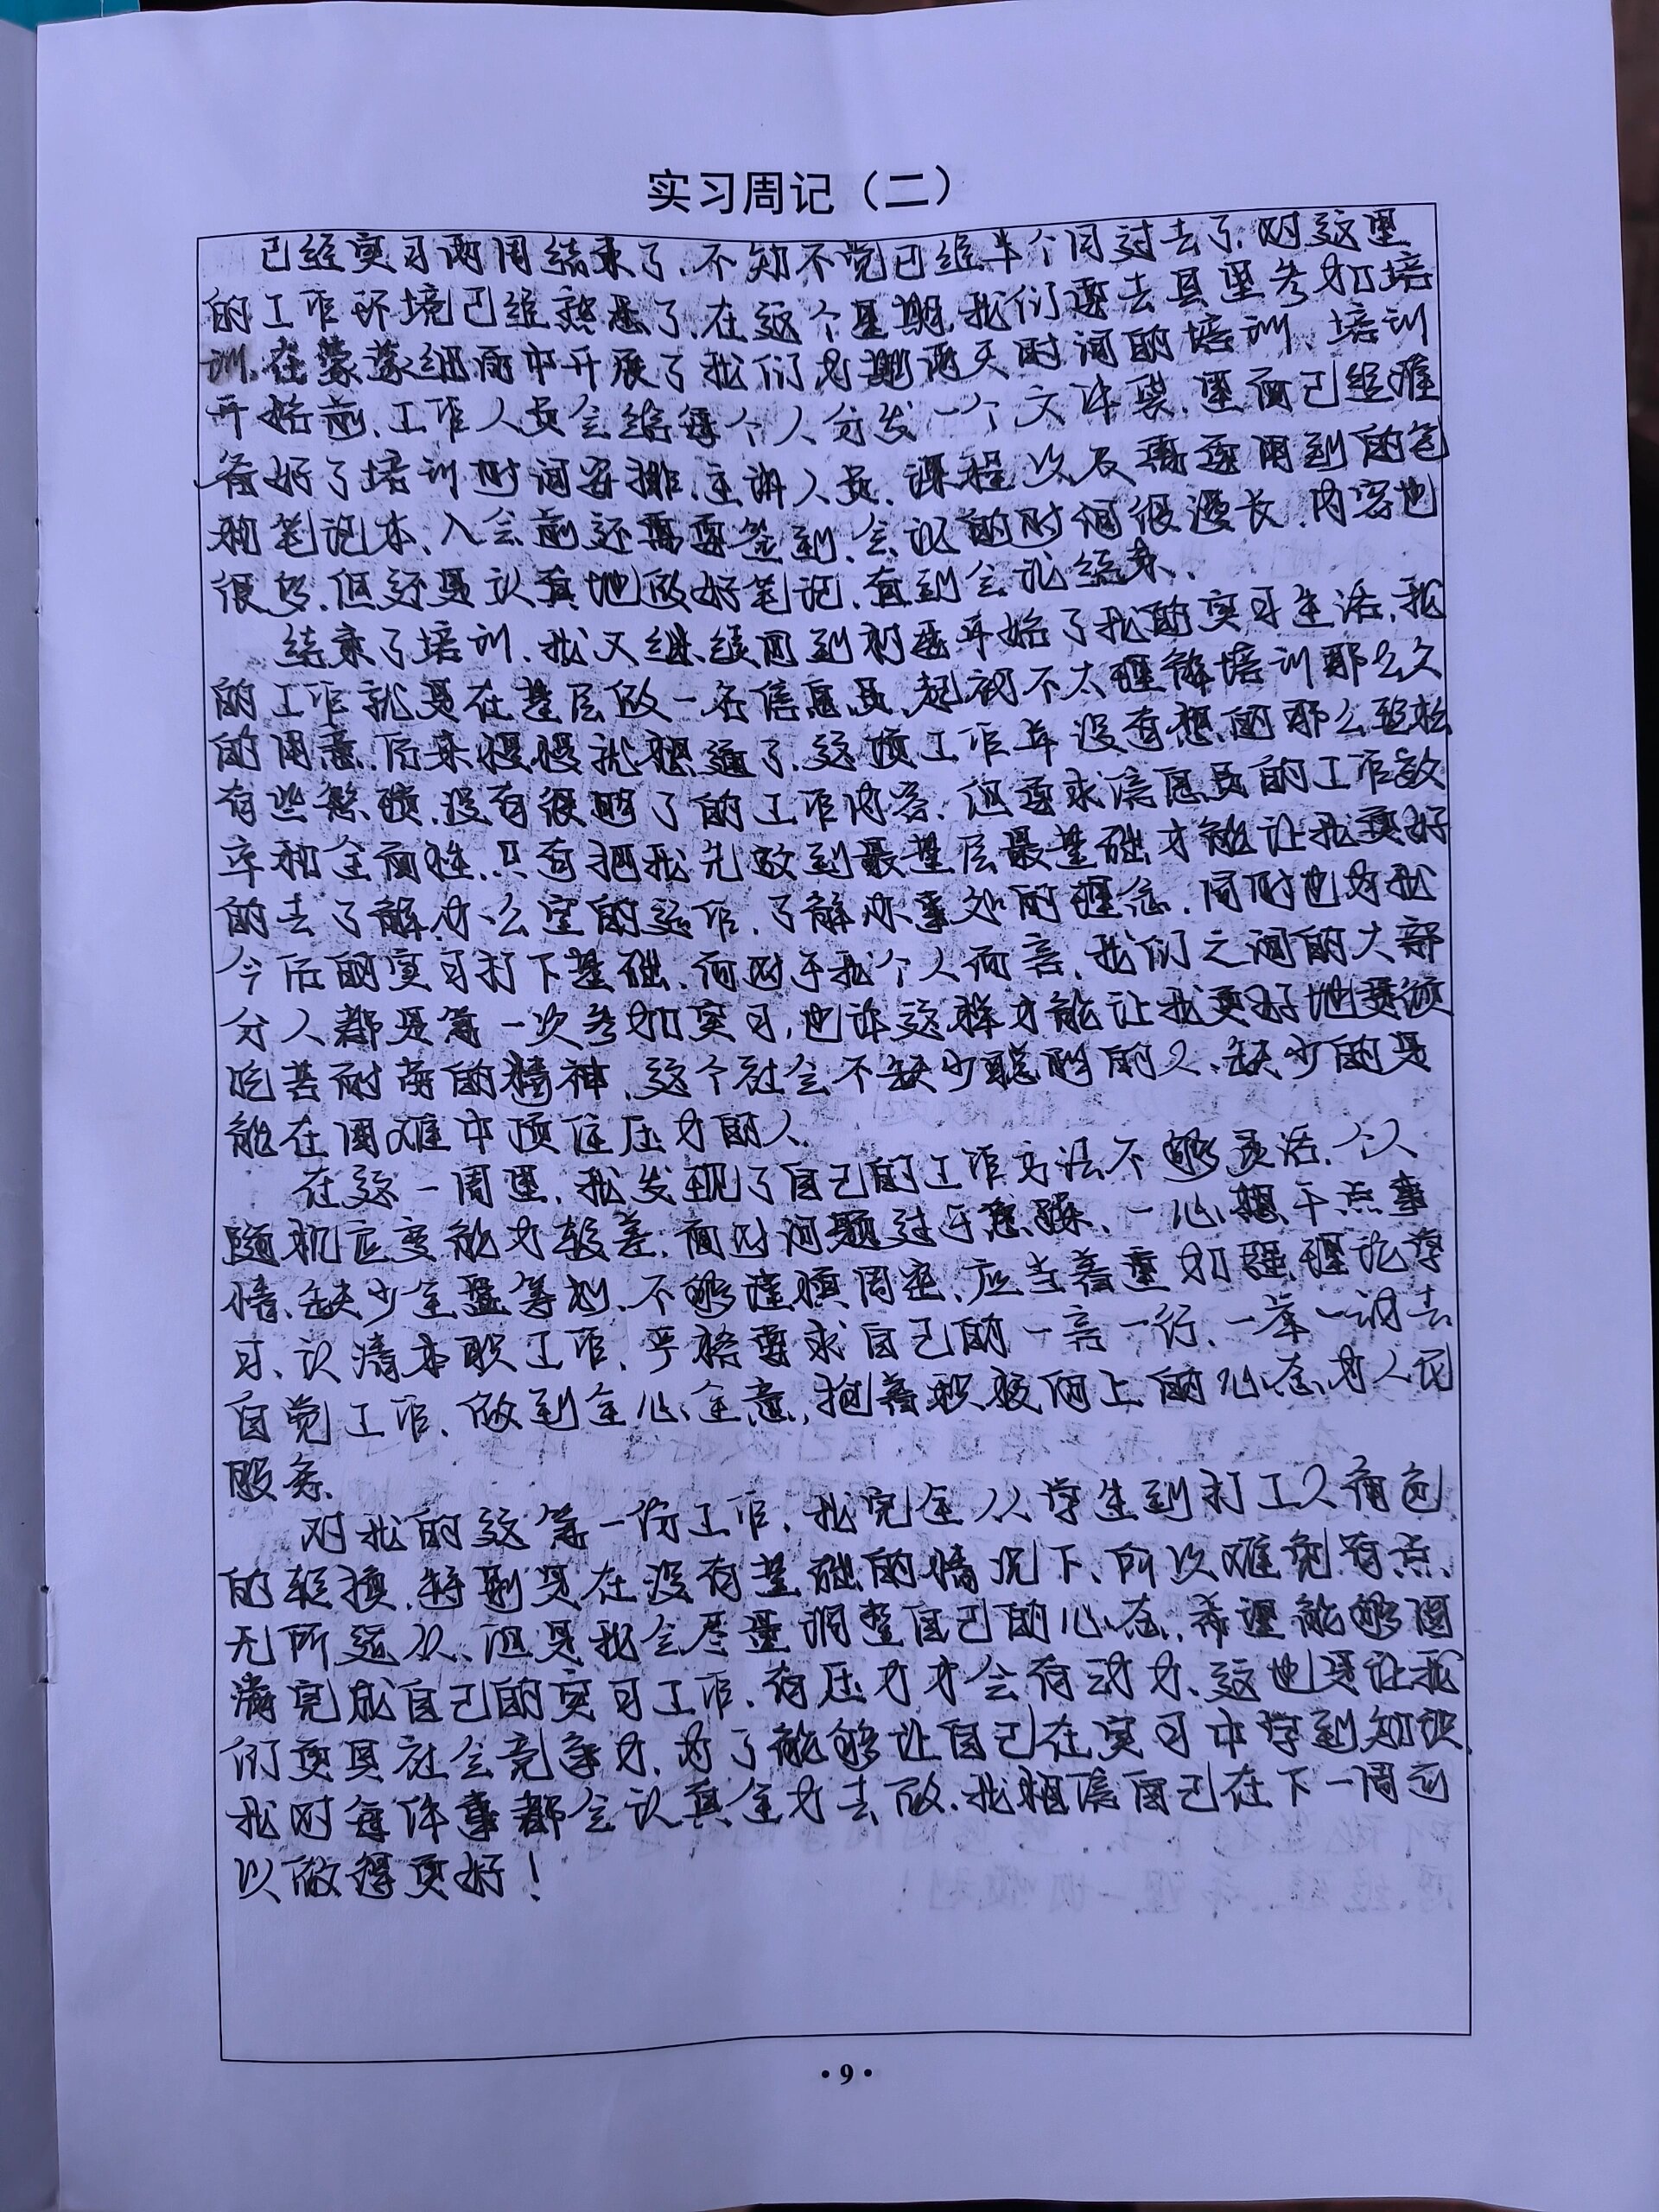 实习周记（二）
已经实习两周结束了，不知不觉已经半个月过去了，对这里
的工作环境已经熟悉了，在这个星期，我们要去县里参加培
训，在蒙蒙细雨中开展了我们为期两天时间的培训，培训
开始前，工作人员会给每个人分发一个文件袋，里面已经准
备好了培训时间安排、主讲人员、课程以及需要用到的笔
和笔记本，入会前还需要签到，会议的时间很漫长，内容也
很多，但还是认真地做好笔记，直到会议结束。
结束了培训，我又继续回到村委开始了我的实习生活，我
的工作就是在基层做一名信息员，起初不太理解培训那么久
的用意，后来慢慢就想通了，这项工作并没有想的那么轻松
有些繁琐，没有很明了的工作内容，但要求信息员的工作效
率和全面性，只有把我先放到最基层最基础，才能让我更好
的去了解办公室的运作，了解办事处的理念，同时也为我
今后的实习打下基础，而对于我个人而言，我们之间的大部
分人都是第一次参加实习，也许这样才能让我更好地要领
吃苦耐劳的精神，这个社会不缺少聪明的人，缺少的是
能在困难中顶住压力的人。
在这一周里，我发现了自己的工作方法不够灵活，个人
随机应变能力较差，面对问题过于急躁，一心想干点事
情，缺少全盘筹划，不够谨慎周密，应当着重加强理论学
习，认清本职工作，严格要求自己的一言一行，一举一动去
自觉工作，做到全心全意，抱着积极向上的心态为人民
服务。
对我的这第一份工作，我完全从学生到打工人角色
的转换，特别是在没有基础的情况下，所以难免有点
无所适从，但是我会尽量调整自己的心态，希望能够圆
满完成自己的实习工作，有压力才会有动力，这也是让我
们更具社会竞争力，为了能够让自己在实习中学到知识，
我对每件事都会认真全力去做，我相信自己在下一周可
以做得更好！
·9·